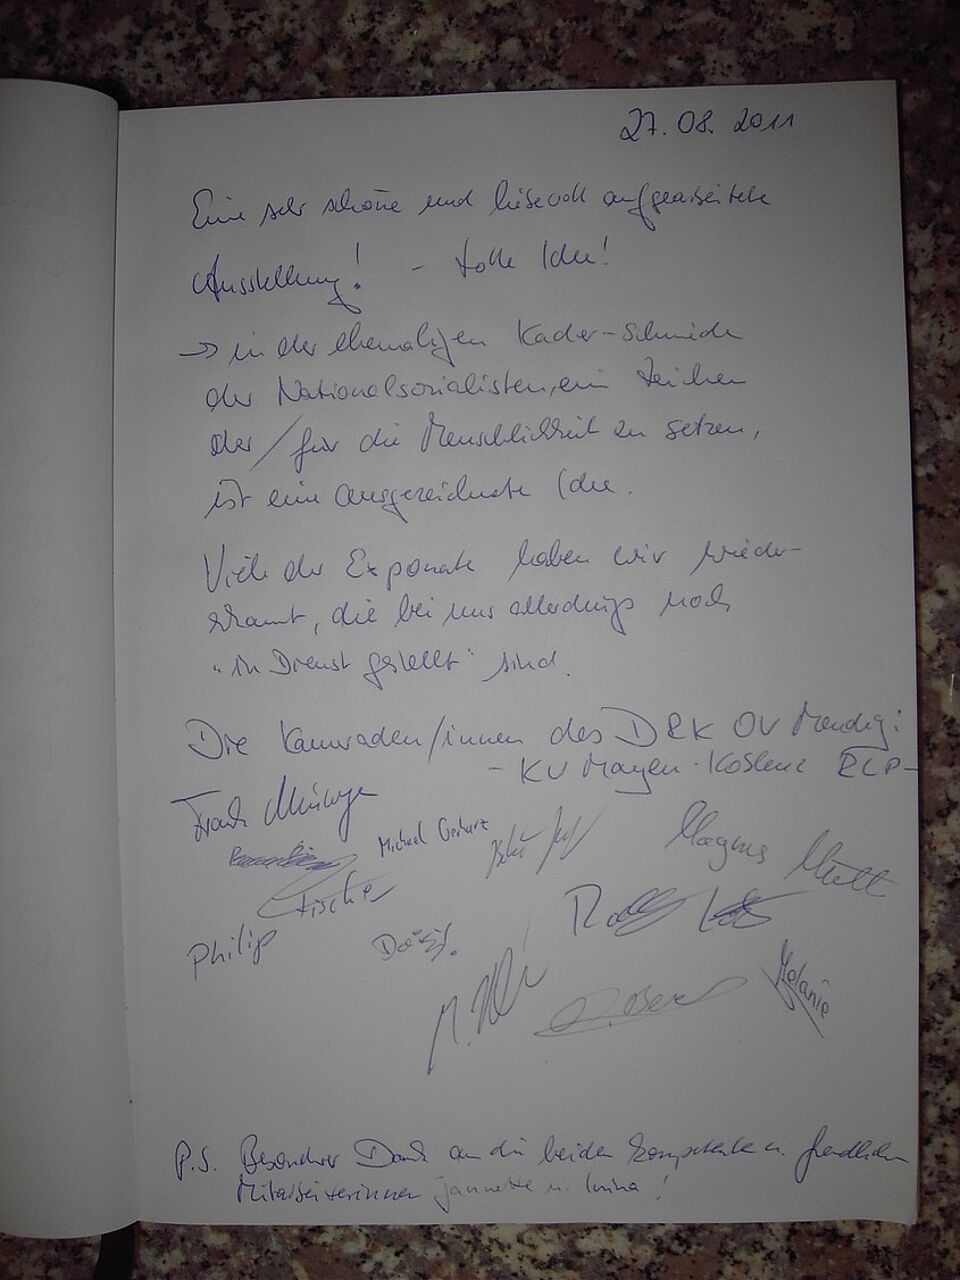 27.08.2011
Eine sehr schöne und liebevoll aufgearbeitete
Ausstellung! - tolle Idee!
→ in der ehemaligen Kader-Schmiede
der Nationalsozialisten, ein Zeichen
der / für die Menschlichkeit zu setzen,
ist eine ausgezeichnete Idee.
Viele der Exponate haben wir wieder-
erkannt, die bei uns allerdings noch
"in Dienst gestellt" sind.
Die Kameraden/innen des DRK OV Mendig:
- KV Mayen-Koblenz RLP-
Frank
Michael Gerhartz
Magnus
Fischer
Philip
Melanie
P.S. Besonderer Dank an die beiden kompetenten u. freundlichen
Mitarbeiterinnen Jannette u.